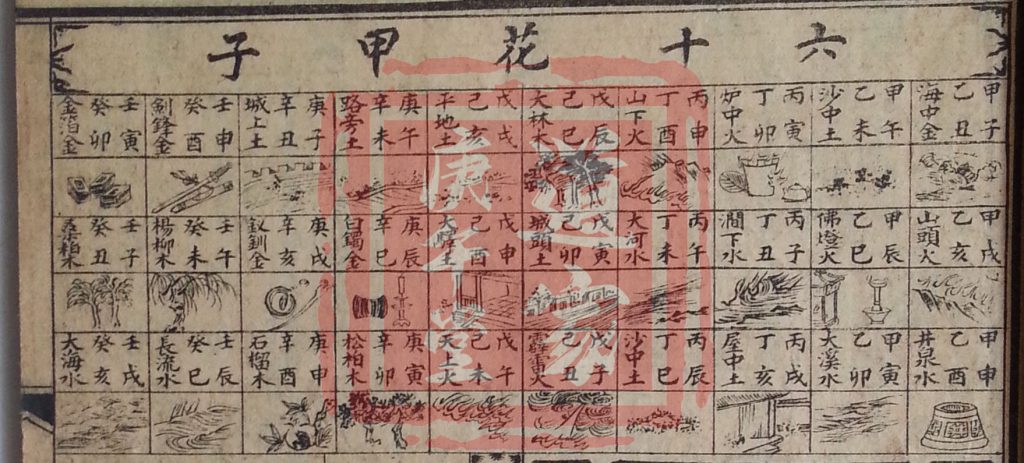 六十花甲子
甲子
乙丑
海中金
甲午
乙未
沙中土
丙寅
丁卯
炉中火
丙申
丁酉
山下火
戊辰
己巳
大林木
戊戌
己亥
平地土
庚午
辛未
路旁土
庚子
辛丑
城上土
壬申
癸酉
劍鋒金
壬寅
癸卯
金泊金
甲戌
乙亥
山頭火
甲辰
乙巳
佛燈火
丙子
丁丑
澗下水
丙午
丁未
大河水
戊寅
己卯
城頭土
戊申
己酉
大驛土
庚辰
辛巳
白鐲金
庚戌
辛亥
釵釧金
壬午
癸未
楊柳木
壬子
癸丑
桑柏木
甲申
乙酉
井泉水
甲寅
乙卯
大溪水
丙戌
丁亥
屋中土
丙辰
丁巳
沙中土
戊子
己丑
霹雷火
戊午
己未
天上火
庚寅
辛卯
松柏木
庚申
辛酉
石榴木
壬辰
癸巳
長流水
壬戌
癸亥
大海水